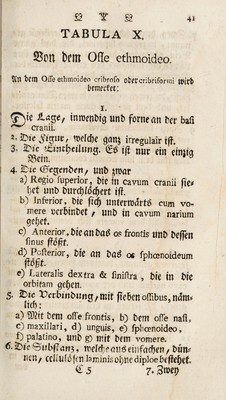 41
TABULA X.
Von dem Osse ethmoideo.
An dem Osse ethmoideo cribroso oder cribriformi wird
bemercket:
1.
Die Lage, inwendig und forne an der basi
cranii.
2. Die Figur, welche ganz irregulair ist.
3. Die Eintheilung. Es ist nur ein einzig
Bein.
4. Die Gegenden, und zwar
a) Regio superior, die in cavum cranii sie-
het und durchlöchert ist.
b) Inferior, die sich unterwärts cum vo-
mere verbindet, und in cavum narium
gehet.
c) Anterior, die an das os frontis und dessen
sinus stößt.
d) Posterior, die an das os sphœnoideum
stößt.
e) Lateralis dextra & sinistra, die in die
orbitam gehen.
5. Die Verbindung, mit sieben ossibus, näm-
lich:
a) Mit dem osse frontis, b) dem osse nasi,
c) maxillari, d) unguis, e) sphœnoideo,
f) palatino, und g) mit dem vomere.
6. Die Substanz, welche aus einfachen, dün-
nen, cellulösen laminis ohne diploe bestehet.
C 5
7. Zwey